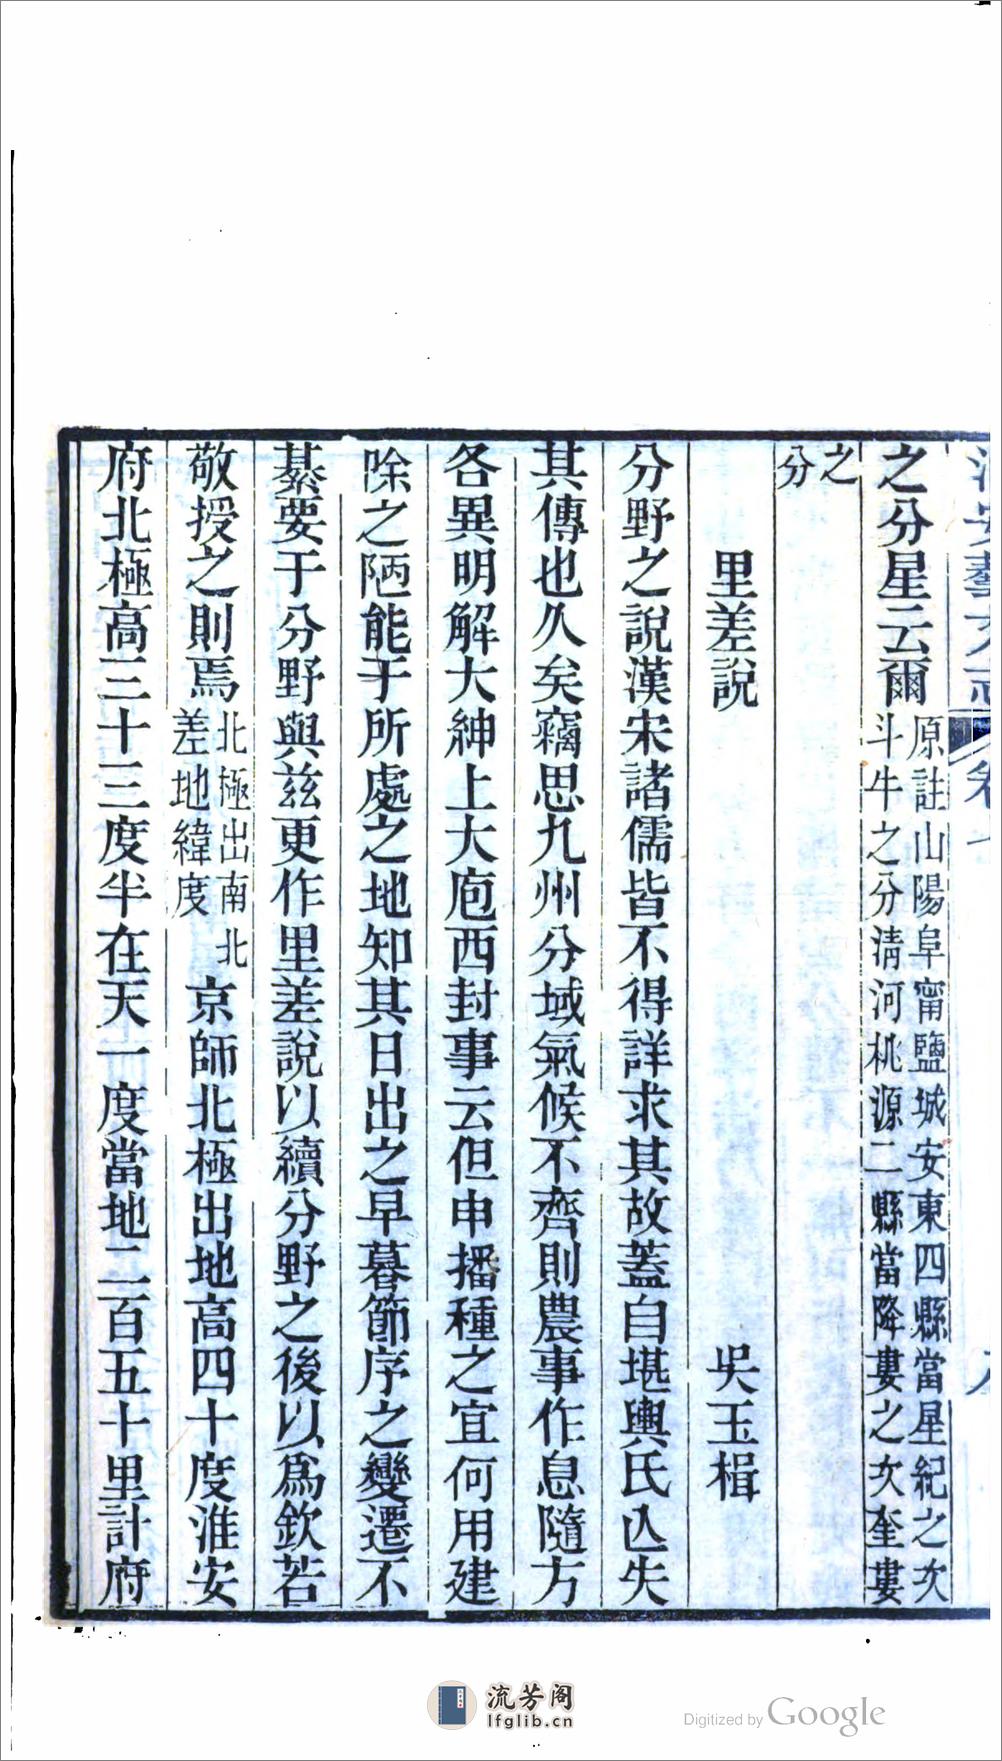 之分星云爾原註山陽阜甯鹽城安東四縣當星紀之次
斗牛之分清河桃源二縣當降婁之次奎婁
之
分
里差說 吳玉楫
分野之說漢宋諸儒皆不得詳求其故蓋自堪輿氏亾失
其傳也久矣竊思九州分域氣候不齊則農事作息隨方
各異明解大紳上大庖西封事云但申播種之宜何用建
除之陋能于所處之地知其日出之早暮節序之變遷不
綦要于分野與茲更作里差說以續分野之後以爲欽若
敬授之則焉北極出南北
差地緯度京師北極出地高四十度淮安
府北極高三十三度半在天一度當地二百五十里計府
流芳阁
lfglib.cn
Digitized by Google